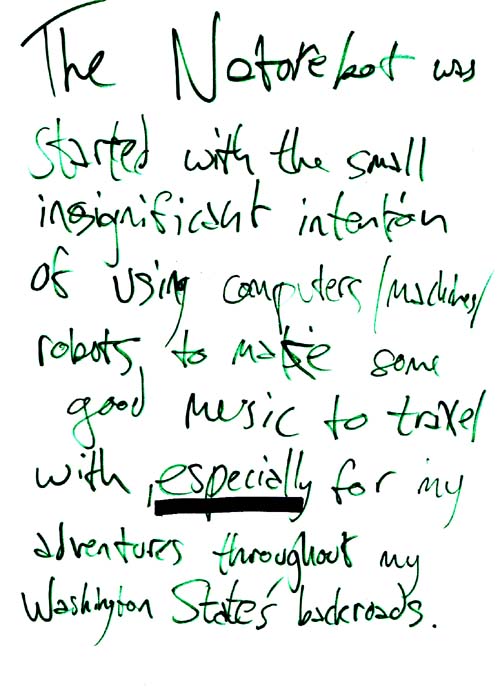 The Naturebot was
started with the small
insignificant intention
of using computers/machines/
robots, to make some
good music to travel
with, especially for my
adventures throughout my
Washington State's backroads.